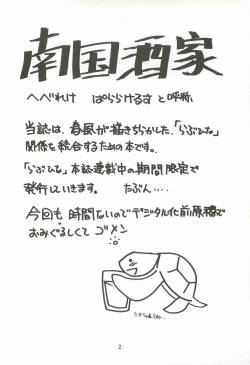 南国酒家
へべれけ ぱららけるす と呼称
当誌は、春風が描きちらかした、「らぶひな」
関係を統合するための本です。
「らぶひな」本誌連載中の期間限定で
発行していきます。 たぶん‥‥
今回も 時間ないのでデジタル化前原稿で
おみぐるしくて ゴメン
2